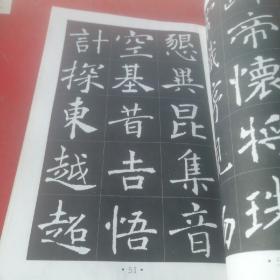 帝懷將珠
懇昆集音
空基昔吉悟
計探東越超
·51·